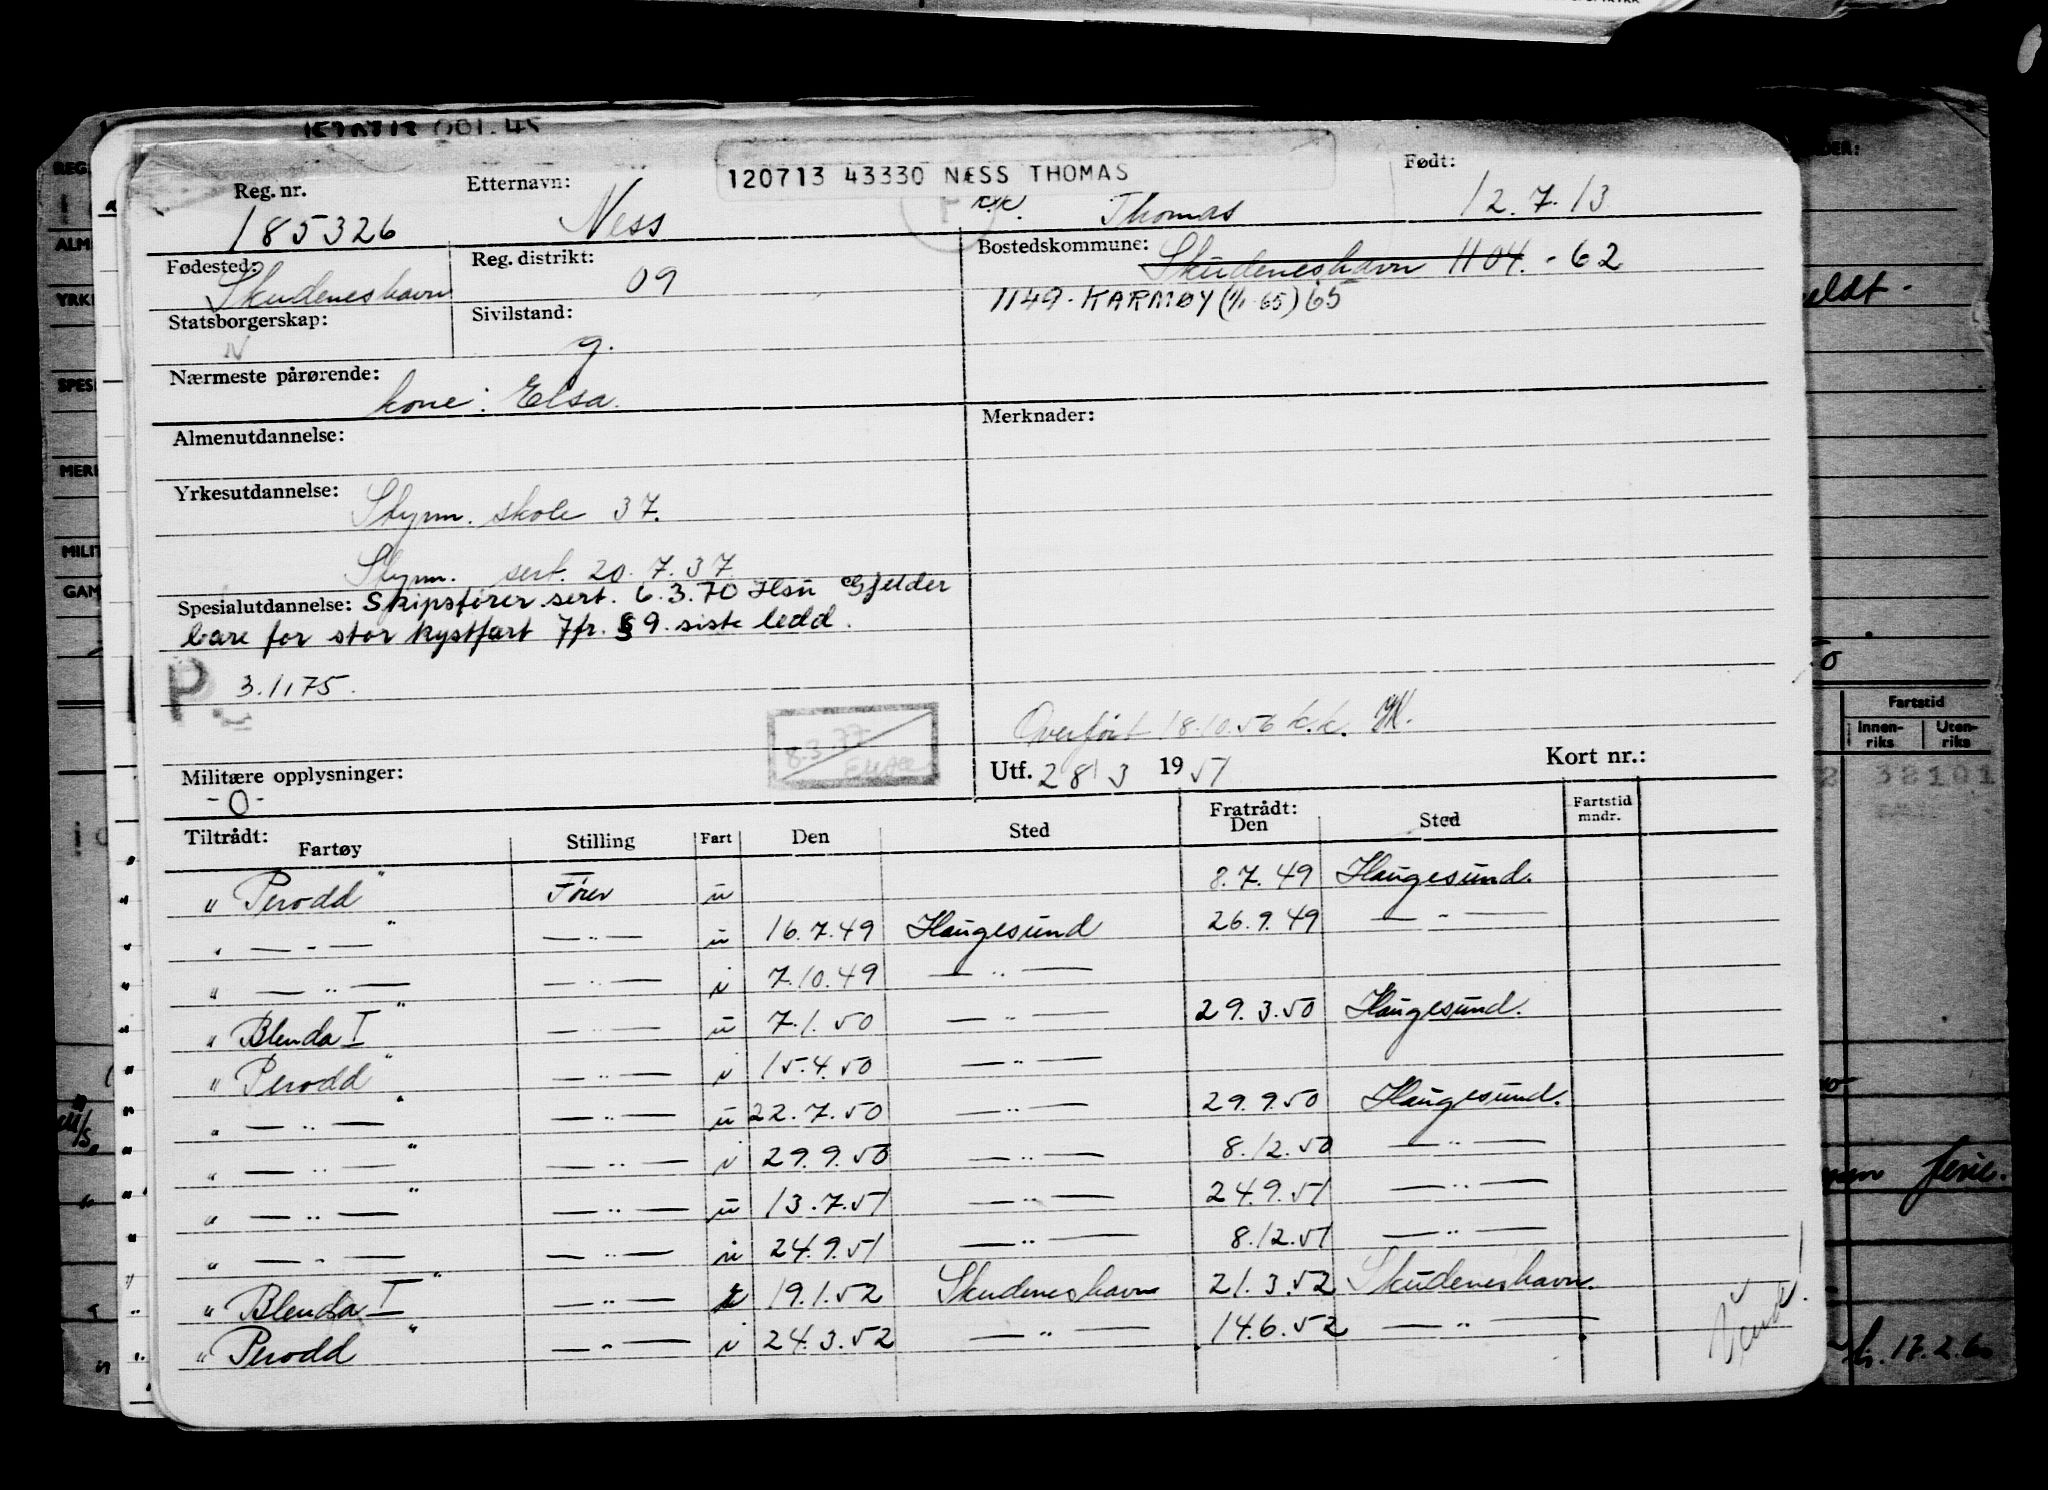 120713 43330 NÆSS THOMAS
Reg. nr. Etternavn: Født:
185326 Ness Thomas 12.7.13
Fødested: Reg. distrikt: Bostedskommune:
Skudeneshavn 09 Skudeneshavn 1104. - 62
1149 - KARMØY (1/1-65) 65
Statsborgerskap: Sivilstand:
N g.
Nærmeste pårørende:
kone: Elsa.
Almenutdannelse: Merknader:
Yrkesutdannelse:
Styrm. skole 37.
Styrm. sert. 20.7.37
Spesialutdannelse: Skipsfører.sert. 6.3.70 Hsn Gjelder
bare for stor kystfart jfr. § 9. siste ledd.
P 3.1.75.
Overført 18.10.56 k.k.
Militære opplysninger: Utf. 28/3 1951 Kort nr.:
-0-
Tiltrådt: Fratrådt: Fartstid
Fartøy Stilling Fart Den Sted Den Sted mndr.
"Perodd" Fører u 8.7.49 Haugesund.
" — " — " — " — u 16.7.49 Haugesund 26.9.49 — " —
" — " — — " — i 7.10.49 — " —
"Blenda I" — " — u 7.1.50 — " — 29.3.50 Haugesund.
"Perodd" — " — i 15.4.50 — " —
" — " — " — " — u 22.7.50 — " — 29.9.50 Haugesund.
" — " — " — " — i 29.9.50 — " — 8.12.50 — " —
" — " — " — " — u 13.7.51 — " — 24.9.51 — " —
" — " — — " — i 24.9.51 — " — 8.12.51 — " —
"Blenda I" — " — 19.1.52 Skudeneshavn 21.3.52 Skudeneshavn.
"Perodd" — " — i 24.3.52 — " — 14.6.52 — " —
Fartstid
Innen-
riks
Uten-
riks
32101
ferie.
17.2.60